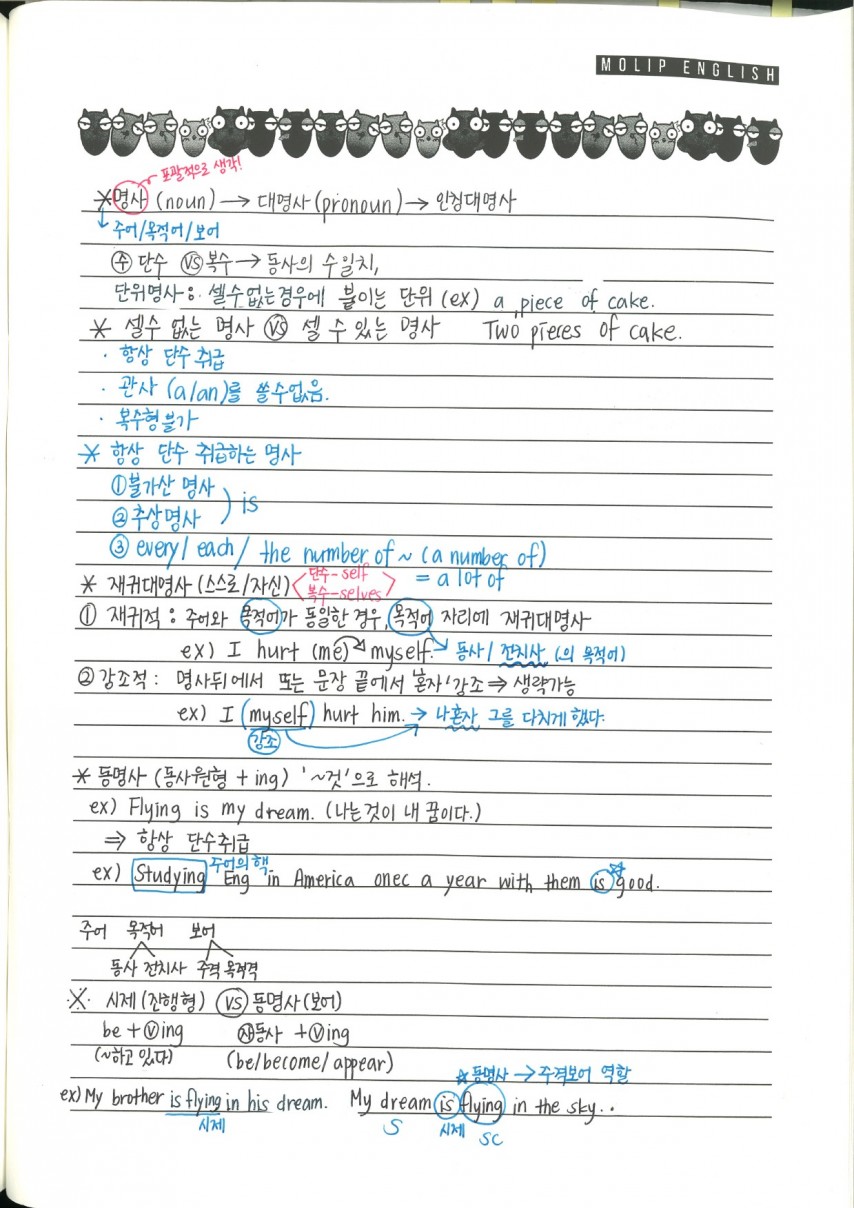 MOLIP ENGLISH
포괄적으로 생각!
*명사 (noun) → 대명사 (pronoun) → 인칭대명사
↓ 주어/목적어/보어
㊜ 단수 VS 복수 → 동사의 수일치,
단위명사 : 셀수없는경우에 붙이는 단위 (ex) a piece of cake.
* 셀수 없는 명사 VS 셀 수 있는 명사 Two pieces of cake.
· 항상 단수 취급
· 관사 (a/an)를 쓸수없음.
· 복수형불가
* 항상 단수 취급하는 명사
①불가산 명사
②추상명사 ) is
③ every/ each/ the number of ~ (a number of)
= a lot of
* 재귀대명사 (스스로/자신) < 단수-self
복수-selves >
① 재귀적 : 주어와 목적어가 동일한 경우, 목적어 자리에 재귀대명사
ex) I hurt (me) myself. → 동사/ 전치사 (의 목적어)
② 강조적 : 명사뒤에서 또는 문장 끝에서 '혼자' 강조 ⇒ 생략가능
ex) I (myself) hurt him. → 나혼자 그를 다치게 했다.
강조
* 동명사 (동사원형 + ing) '~것'으로 해석.
ex) Flying is my dream. (나는것이 내 꿈이다.)
⇒ 항상 단수취급
주어의 핵
ex) Studying Eng in America onec a year with them is good.
주어 목적어 보어
동사 전치사 주격 목적격
※ 시제 (진행형) VS 동명사 (보어)
be + ⓥing ㉂동사 + ⓥing
(~하고 있다) (be/become/appear)
☆동명사 → 주격보어 역할
ex) My brother is flying in his dream. My dream is flying in the sky..
시제 S 시제 SC